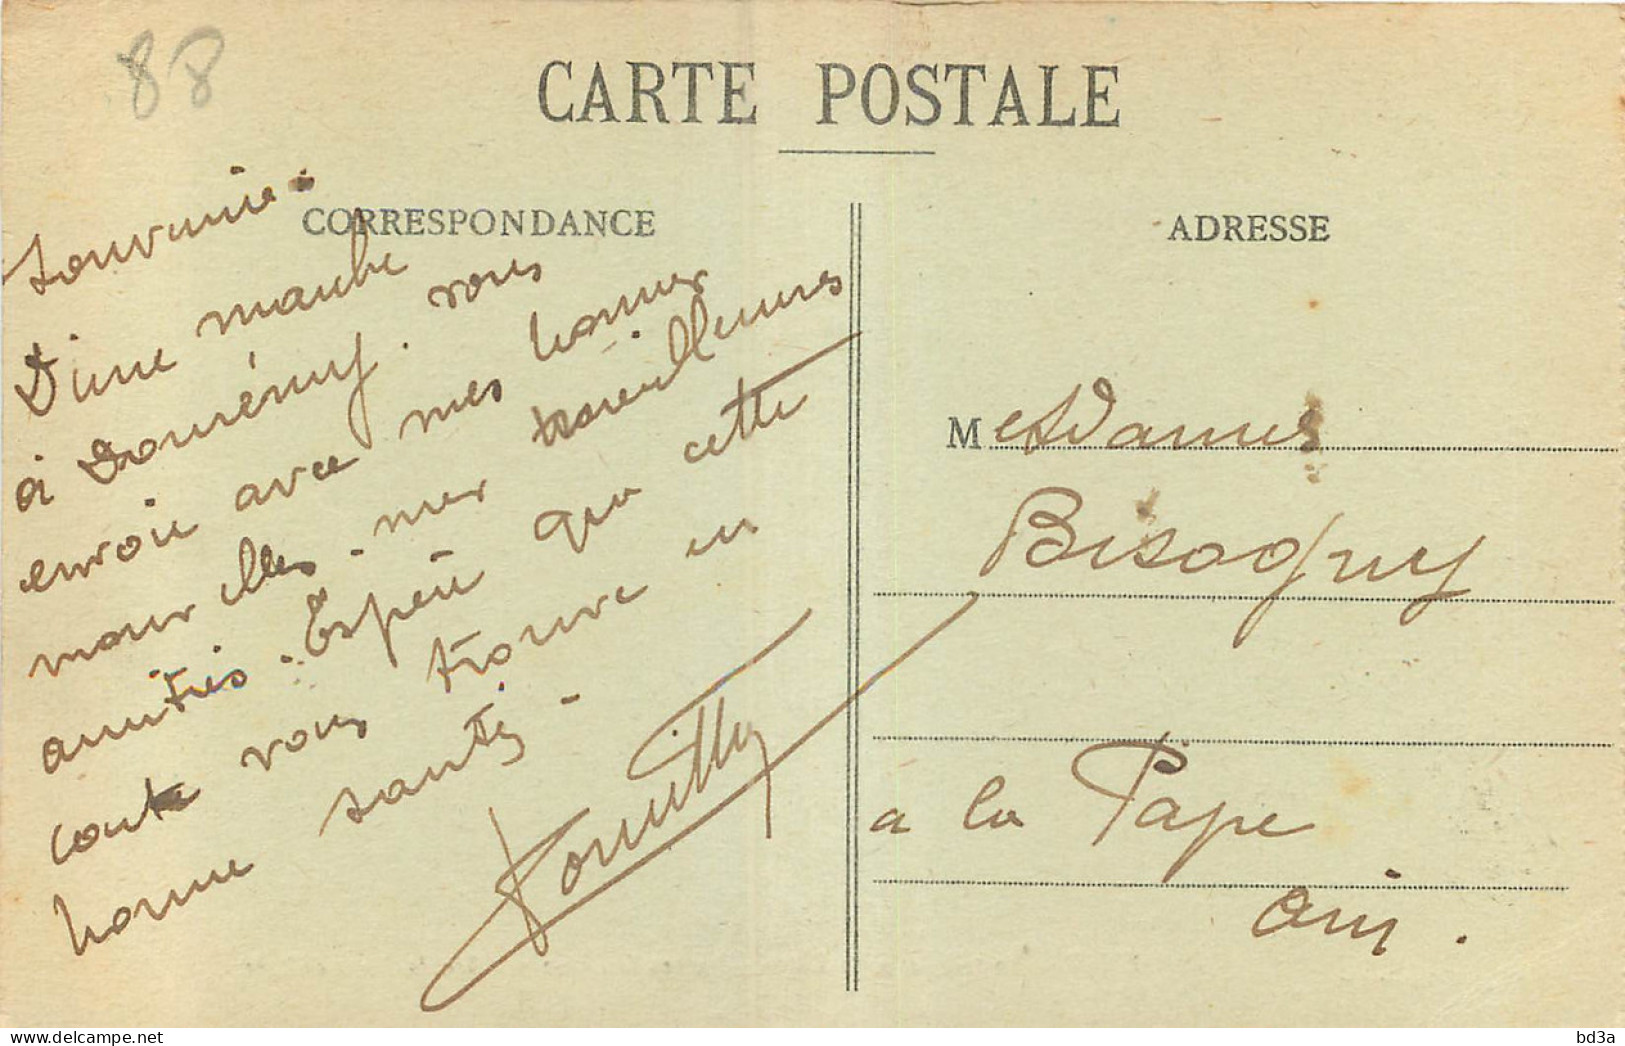 88
CARTE POSTALE
CORRESPONDANCE
ADRESSE
souvenir
D'une marche
à Domrémy. vous
envoie avec mes bonnes
nouvelles - mes meilleures
amitiés. Espère que cette
carte vous trouve en
bonne santé -
Mesdames
Bisogny
a la Pape
Ain.
delcampe.net
bd3a